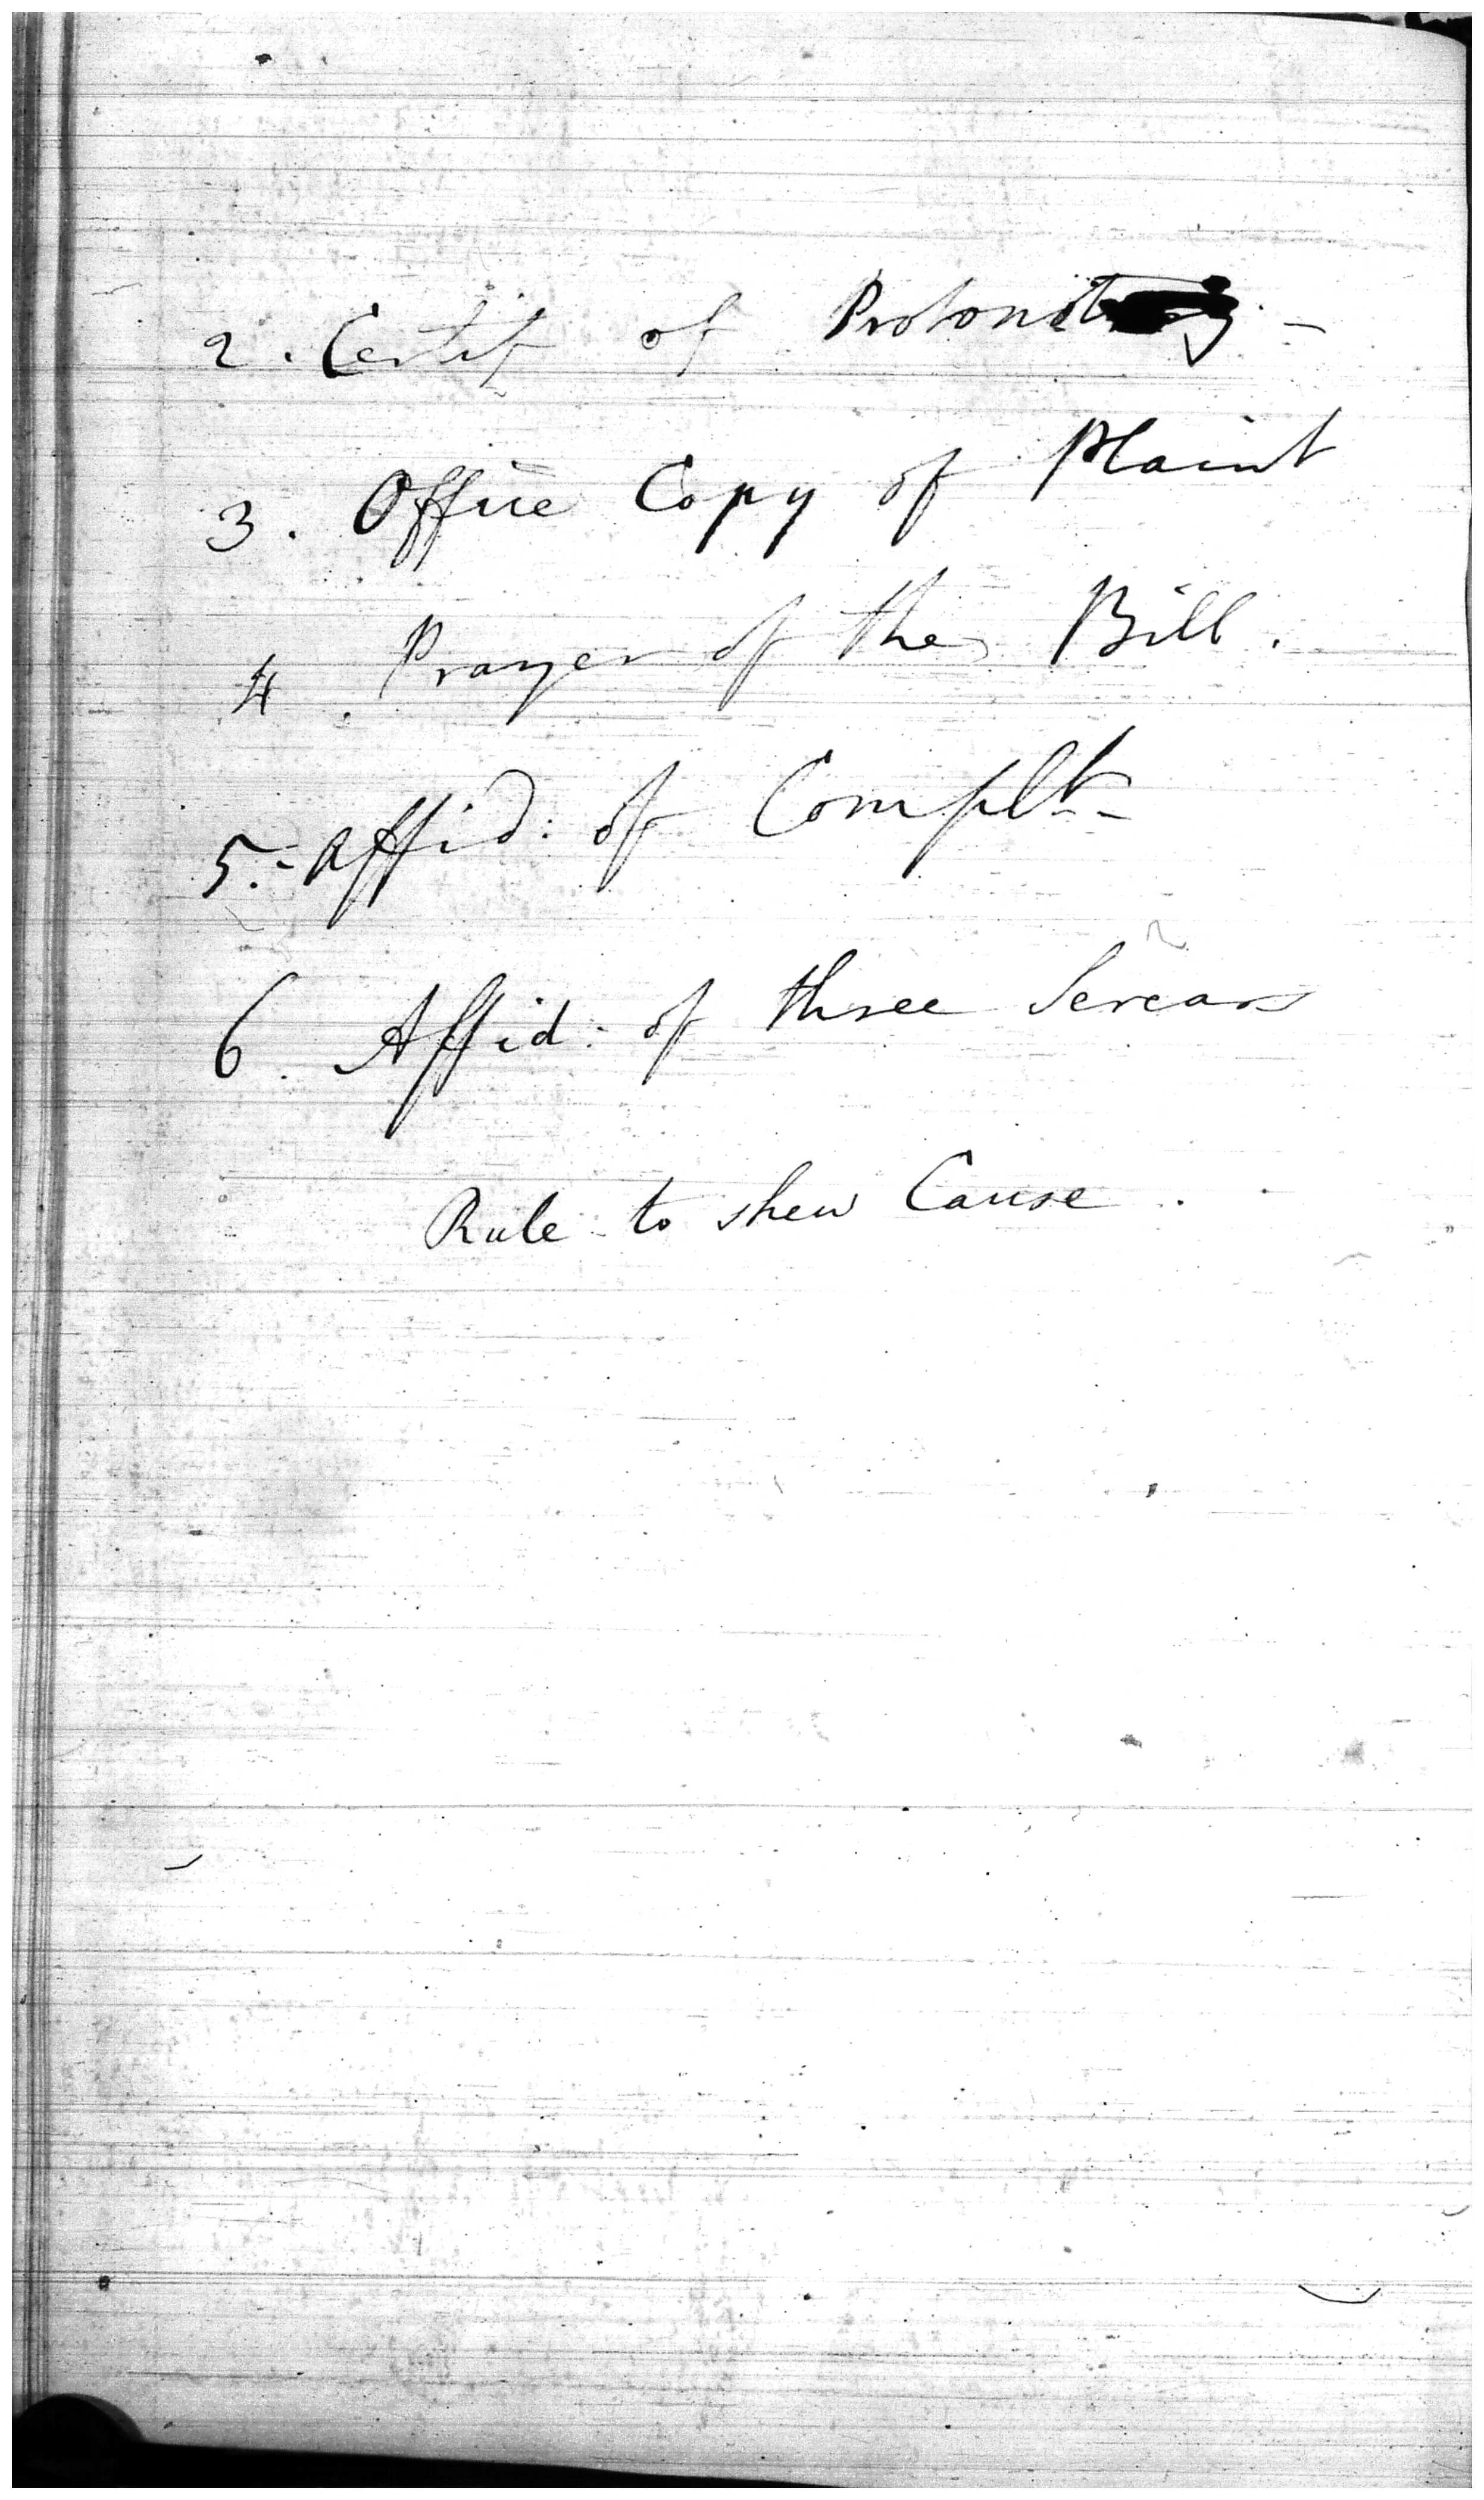 2. Certif of Protonoty -
3. Office Copy of Plaint
4. Prayer of the Bill.
5. - Affid: of Complt -
6. Affid: of three Sercars
Rule to shew Cause.